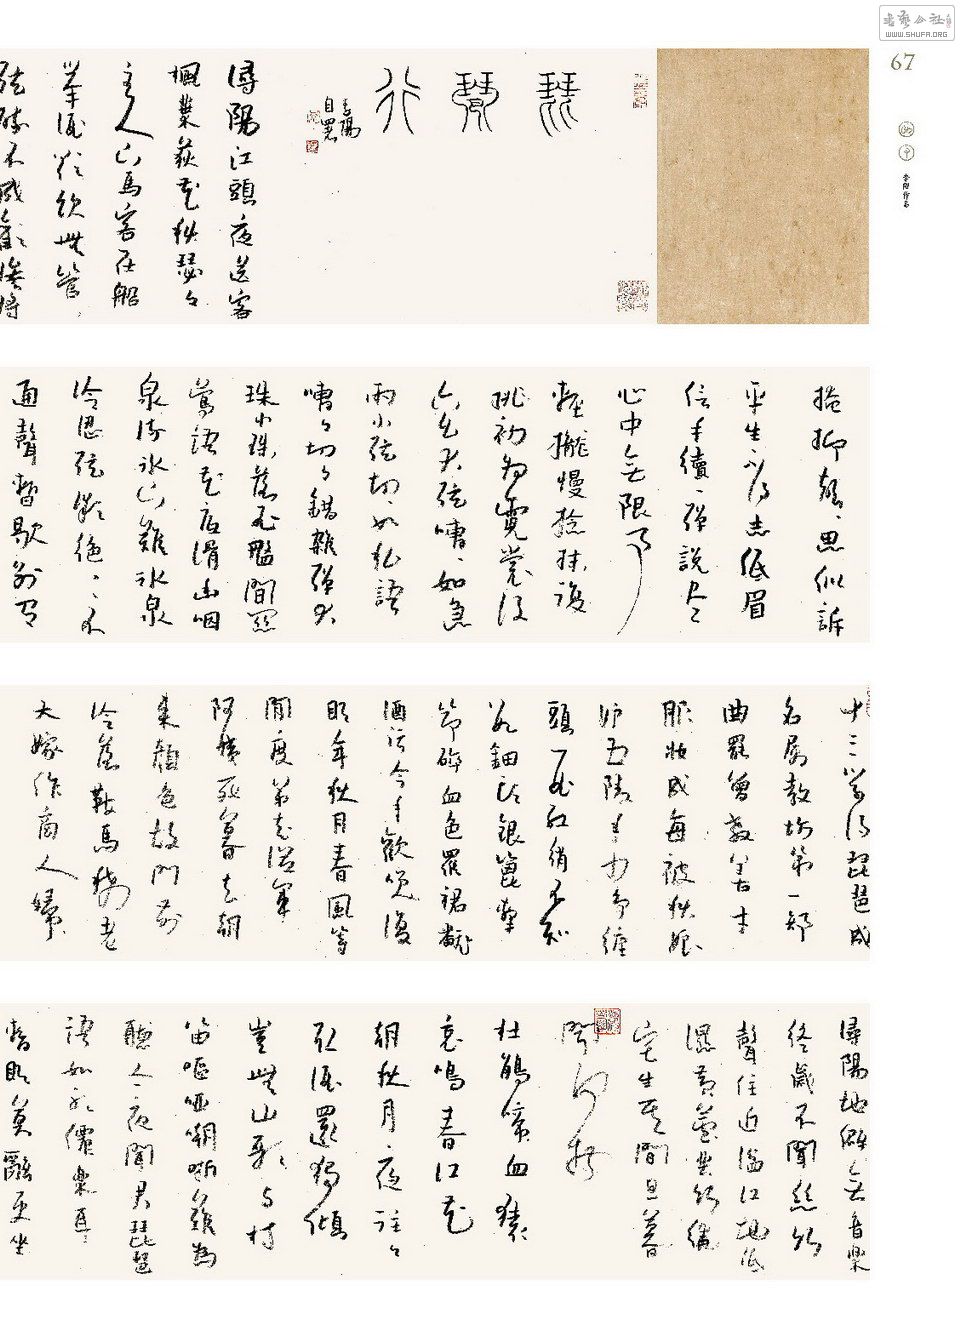 書藝公社
WWW.SHUFA.ORG
67
李陽作品
琵琶行
李陽
自署
潯陽江頭夜送客
楓葉荻花秋瑟々
主人下馬客在船
舉酒欲飲無管
醉不成歡慘將
掩抑聲々思似訴
平生不得志低眉
信手續々彈說盡
心中無限事
輕攏慢撚抹復
挑初為霓裳後
六幺大弦嘈々如急
雨小弦切々如私語
嘈々切々錯雜彈大
珠小珠落玉盤間關
鶯語花底滑幽咽
泉流冰下難冰泉
冷澀弦凝絕々不
通聲暫歇別有
十三學得琵琶成
名屬教坊第一部
曲罷曾教善才
服妝成每被秋娘
妒五陵年少爭纏
頭一曲紅綃不知
數鈿頭銀篦擊
節碎血色羅裙翻
酒污今年歡笑復
明年秋月春風等
閒度弟走從軍
阿姨死暮去朝
來顏色故門前
冷落鞍馬稀老
大嫁作商人婦
潯陽地僻無音樂
終歲不聞絲竹
聲住近湓江地低
濕黃蘆苦竹繞
宅生其間旦暮
聞何物
杜鵑啼血猿
哀鳴春江花
朝秋月夜往々
取酒還獨傾
豈無山歌與村
笛嘔啞嘲哳難為
聽今夜聞君琵琶
語如聽仙樂耳
暫明莫辭更坐